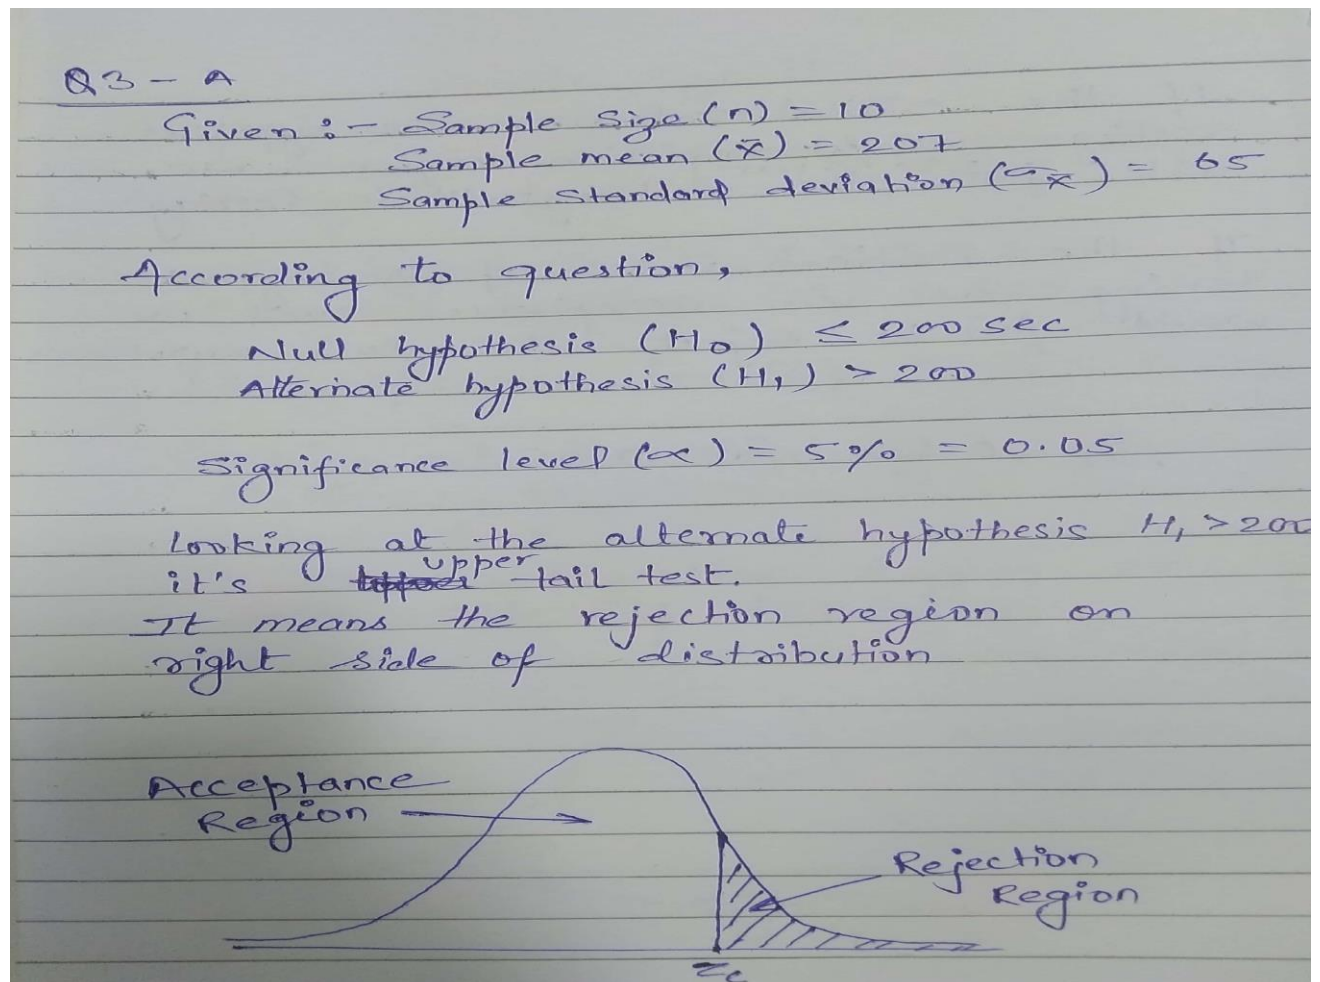 Q3 - A
Given :- Sample size (n) = 10
Sample mean (x̄) = 207
Sample standard deviation (σx̄) = 65
According to question,
Null hypothesis (H0) ≤ 200 sec
Alternate hypothesis (H1) > 200
Significance level (∝) = 5% = 0.05
Looking at the alternate hypothesis H1 > 200
it's upper tail test.
It means the rejection region on
right side of distribution
Acceptance
Region
Rejection
Region
Zc